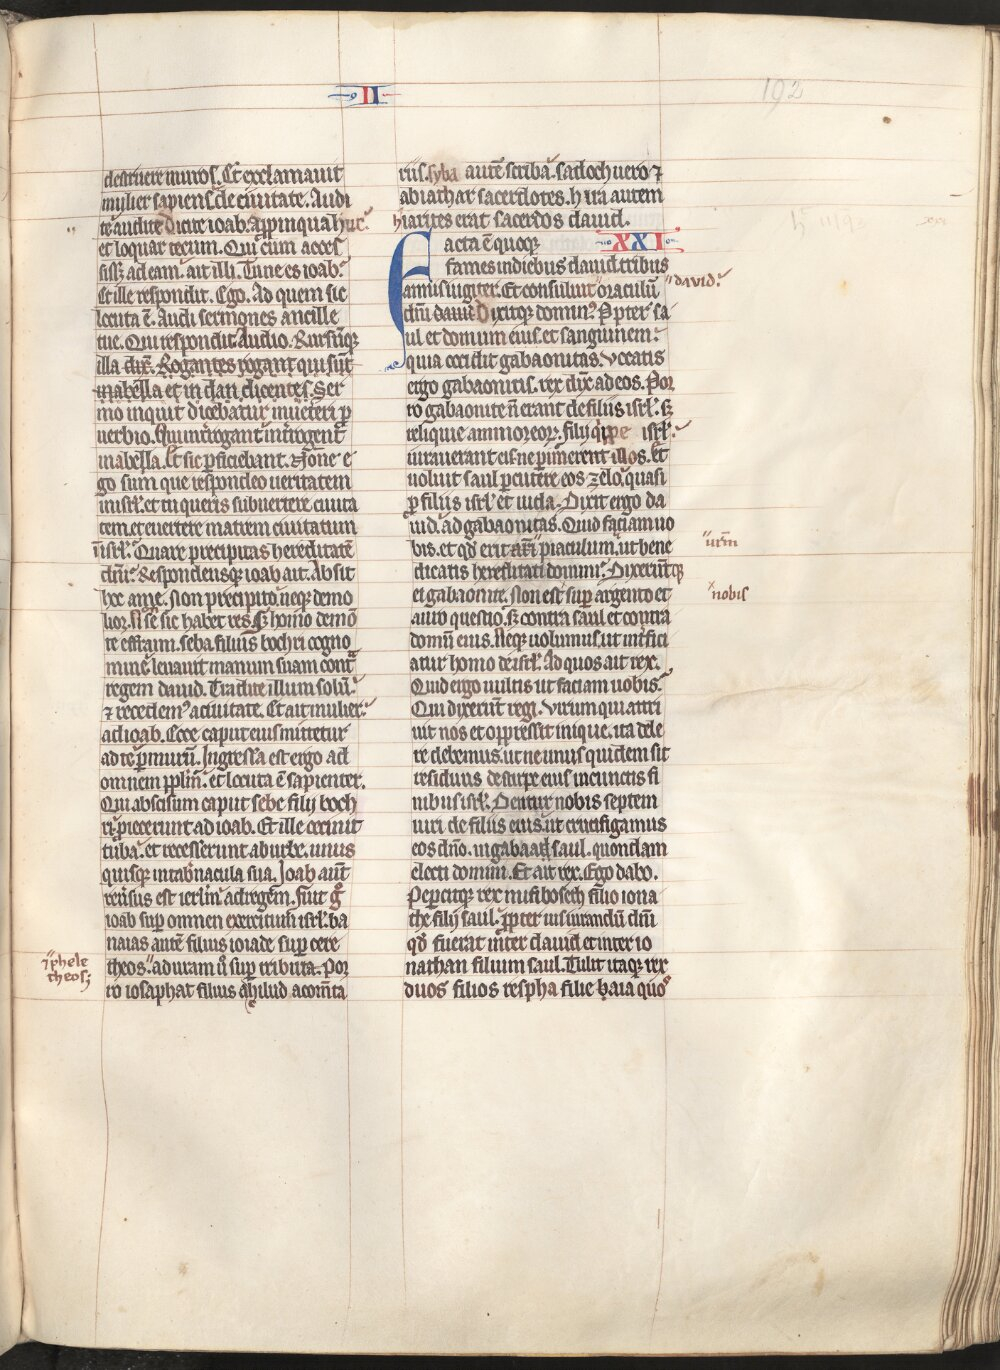 II
192
destruere muros. Et exclamauit
mulier sapiens de ciuitate. Audi
te audite dicite ioab. Appinqua huc.
et loquar tecum. Qui cum acces
siss; ad eam. ait illi. Tu ne es ioab.
Et ille respondit. Ego. Ad quem sic
locuta ē. Audi sermones ancille
tue. Qui respondit Audio. Rursūq;
illa dix̄. Rogantes rogant qui sūt
in abella et in dan dicentes. Ser
mo inquit dicebatur in ueteri p
uerbio. Qui int̄rogant int̄rogent
in abella. Et sic pficiebant. Nōne e
go sum que respondeo ueritatem
in isrl. et tu queris subuertere ciuita
tem et euertere matrem ciuitatum
in isrl. Quare precipitas hereditatē
dn̄i. Respondensq; ioab ait. Absit
hoc a me. Non precipito neq; demo
lior. Nō se sic habet res. S; homo de mō
te effraim. seba filius bochri cogno
mine leuauit manum suam cont̄
regem dauid. Tradite illum solū.
⁊ recedem⁹ a ciuitate. Et ait mulier.
ad ioab. Ecce caput eius mittetur
ad te p murū. Ingressa est ergo ad
omnem pplm̄. et locuta ē sapienter.
Qui abscisum caput sebe filij boch
ri. piecerunt ad ioab. Et ille cecinit
tuba. et recesserunt ab urbe. unus
quisq; in tab̄nacula sua. Ioab aūt
reūsus est ierlm̄ ad regem. Fuit g̊
ioab sup omnem exercitum isrl. ba
naias autē filius ioiade sup cere
theos." aduram ū sup tributa. Por
ro iosaphat filius ahilud a com̄ta
"⁊ phele
theos;
riis. syba autē scriba. sadoch uero ⁊
abiathar sacerdotes. hira autem
hiarites erat sacerdos dauid.
XXI
Facta ē quoq;
fames in diebus dauid tribus
annis iugiter. Et consuluit" oraculū
"dauid.
dn̄i dauid Dixitq; domin⁹. Ppter sa
ul et domum eius et sanguinem.
quia occidit gabaonitas. Uocatis
ergo gabaonitis. rex dix̄ ad eos. Por
ro gabaonite n̄ erant de filiis isrl. s;
reliquie ammoreoꝝ. filij qippe isrl.
iurauerant eis ne pimerent illos. Et
uoluit saul pcutere eos zelo. quasi
p filiis isrl et iuda. Dixit ergo da
uid. ad gabaonitas. Quid faciam uo
bis. et qd̄ erit" piaculum. ut bene
"ur̄m
dicatis hereditati domini. Dixerūtq;
ei gabaonite. Non est sup argento et
ˣnobis
auro questio. s; contra saul et contra
domū eius. Neq; uolumus. ut int̄fici
atur homo de isrl. Ad quos ait rex.
Quid ergo uultis ut faciam uobis.
Qui dixerūt regi. Virum qui attri
uit nos et oppressit inique. ita dele
re debemus. ut ne unus quidem sit
residuus de stirpe eius in cunctis fi
nibus isrl. Dentur nobis septem
uiri de filiis eius. ut crucifigamus
eos dn̄o. in gabaad saul. quondam
electi domini. Et ait rex. Ego dabo.
Pepercitq; rex mifiboseth filio iona
the filij saul. ppter iusiurandū dn̄i
qd̄ fuerat inter dauid et inter io
nathan filium saul. Tulit itaq; rex
duos filios respha filie haia quo